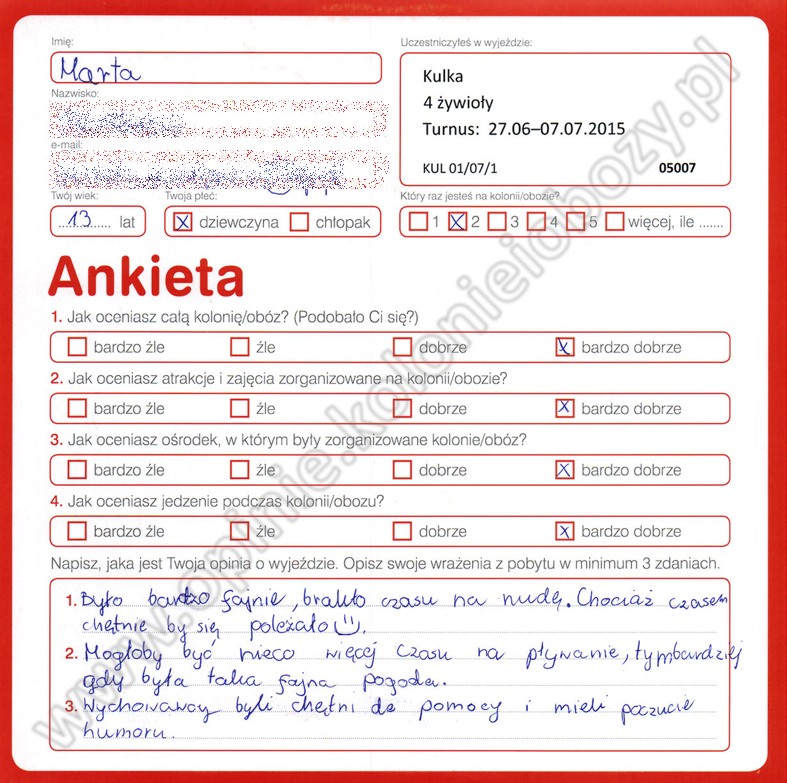 Imię:
Marta
Nazwisko:
e-mail:
Twój wiek:
13 lat
Twoja płeć:
dziewczyna chłopak
Uczestniczyłeś w wyjeździe:
Kulka
4 żywioły
Turnus: 27.06–07.07.2015
KUL 01/07/1 05007
Który raz jesteś na kolonii/obozie?
1 2 3 4 5 więcej, ile .......
Ankieta
1. Jak oceniasz całą kolonię/obóz? (Podobało Ci się?)
bardzo źle źle dobrze bardzo dobrze
2. Jak oceniasz atrakcje i zajęcia zorganizowane na kolonii/obozie?
bardzo źle źle dobrze bardzo dobrze
3. Jak oceniasz ośrodek, w którym były zorganizowane kolonie/obóz?
bardzo źle źle dobrze bardzo dobrze
4. Jak oceniasz jedzenie podczas kolonii/obozu?
bardzo źle źle dobrze bardzo dobrze
Napisz, jaka jest Twoja opinia o wyjeździe. Opisz swoje wrażenia z pobytu w minimum 3 zdaniach.
1. Było bardzo fajnie, brakło czasu na nudę. Chociaż czasem
chętnie by się poleżało :).
2. Mogłoby być nieco więcej czasu na pływanie, tymbardziej
gdy była taka fajna pogoda.
3. Wychowawcy byli chętni do pomocy i mieli poczucie
humoru.
www.opinie.kolonieiobozy.pl